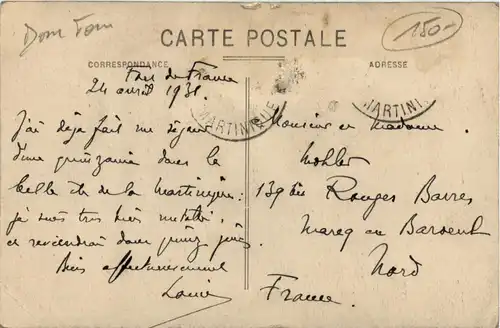 Dom Tom
150-
CARTE POSTALE
CORRESPONDANCE
ADRESSE
Fort de France
24 avril 1931.
MARTINIQUE
MARTINI
J'ai déjà fait un séjour
d'une quinzaine dans la
belle île de la Martinique:
je suis très bien
et reviendrai dans quinze jours
Bien affectueusement
Monsieur et Madame
Mohler
139 bis Rouges Barres
Marcq en Baroeul
Nord
France.